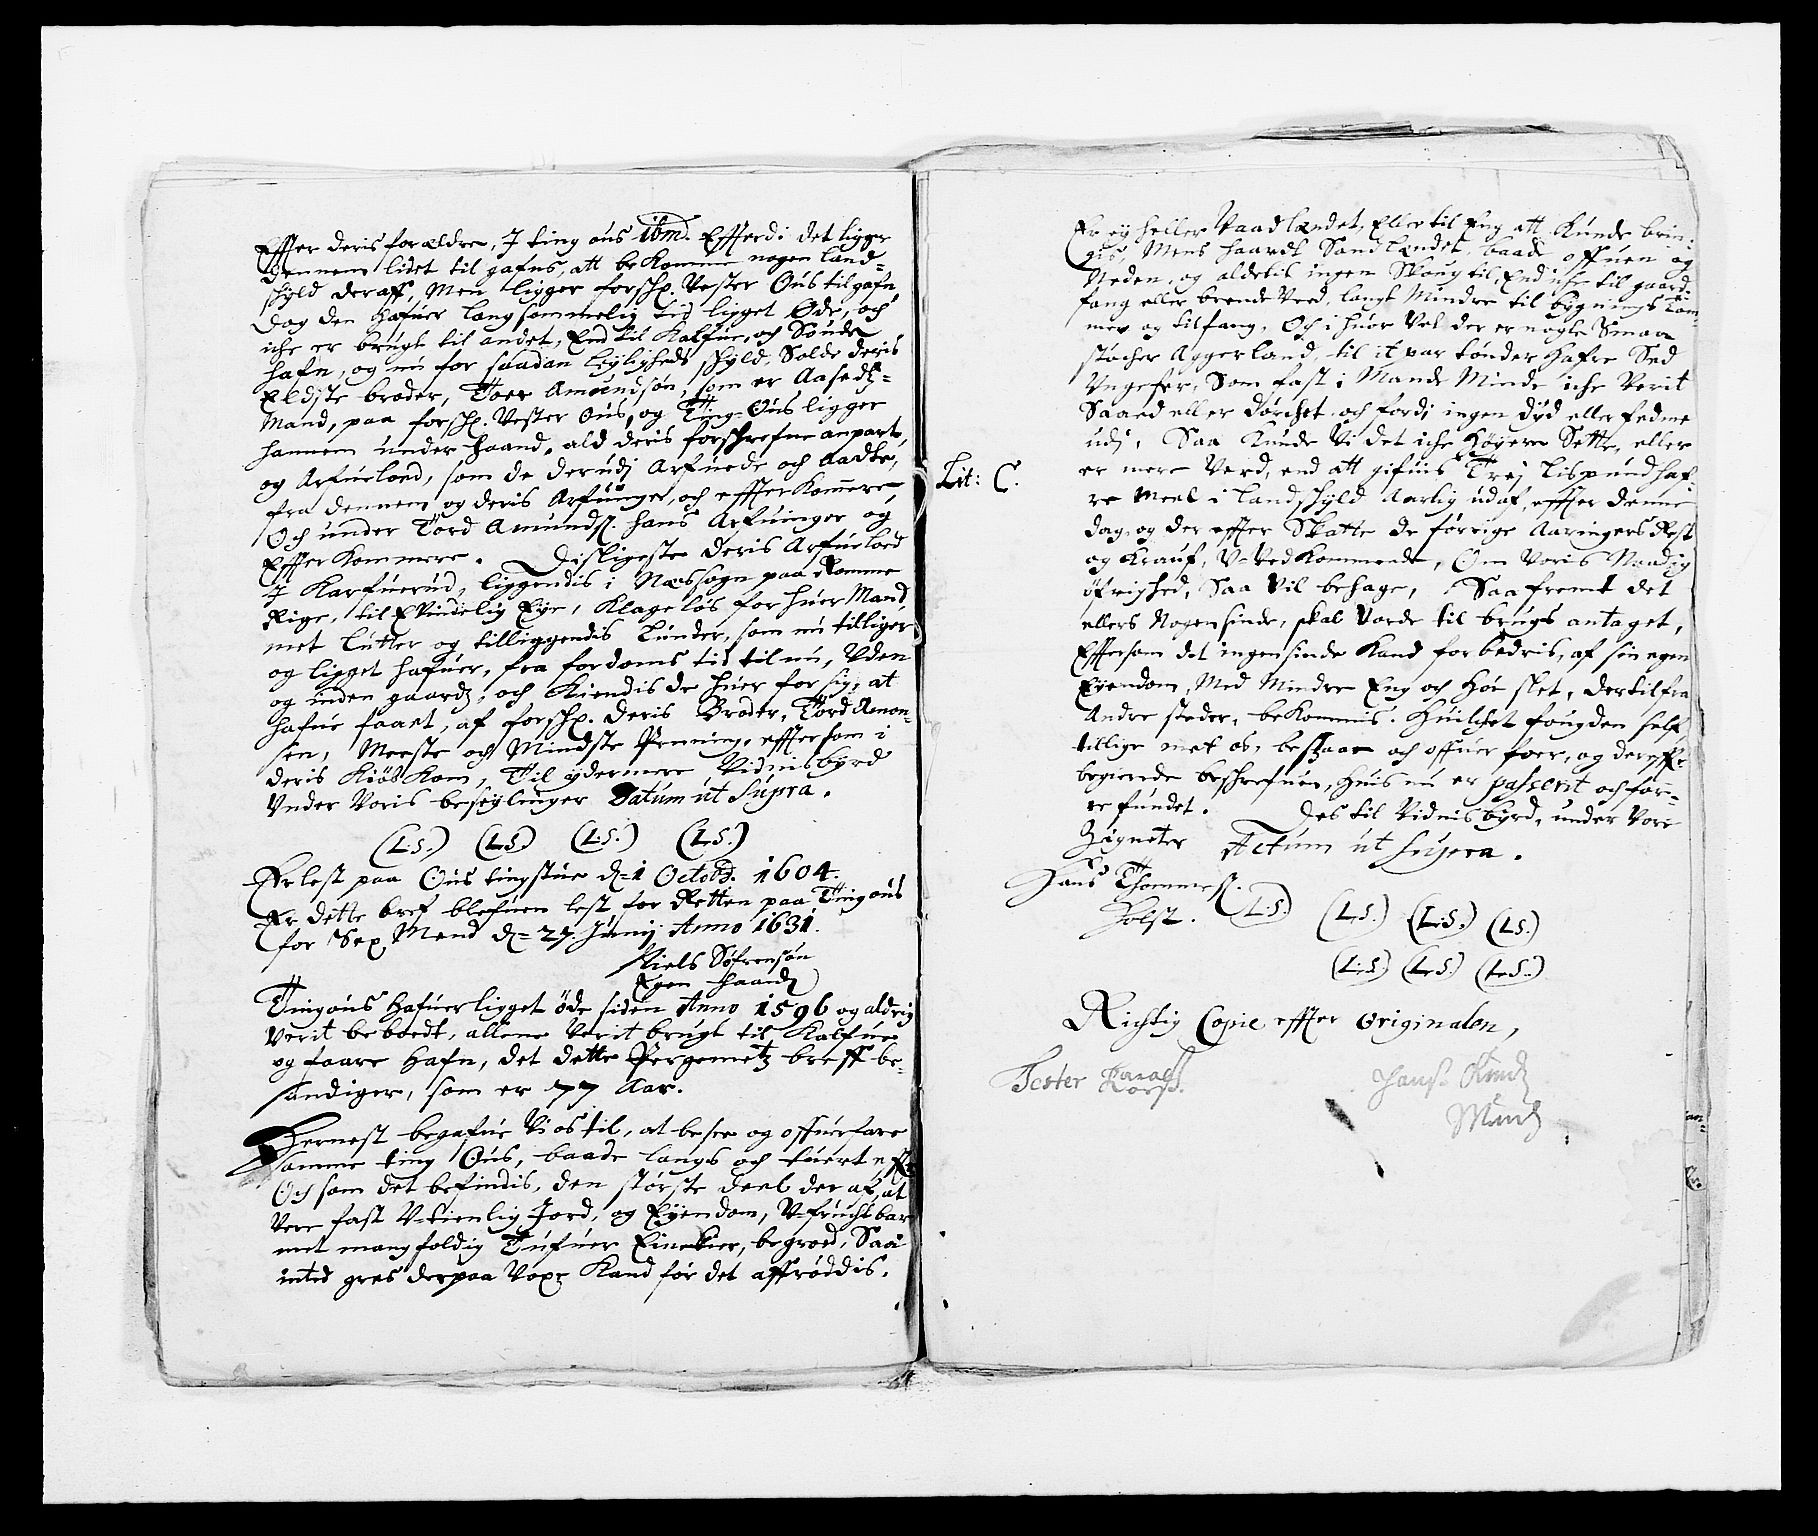 Effter deris forældre, J ting ous ibm. Efferdi det ligger
dennem lidet til gafns, att bekomme nogen land-
skyld deraff, Men ligger forschr. Vester Ous til gafn
Dog den hafuer langsommelig tid ligget Øde, och
iche er brugt til andet, End til Kalfue, och Soude
hafn, og nu for saadan leyligheds skyld, Solde deris
Eldste broder, Toer Amundsøn, som er Aasedz-
Mand, paa forschr. Vester Ous, og Ting-Ous ligger
hannem under haand, ald deris forschrefne anparte,
og Arfuelod, som de derudj Arfuede och aadte,
fra dennem og deris Arfuinger, och effterkommere,
Och under Tord Amunds. hans Arfuinger og
Effterkommere. Disligeste deris Arfuelod
J Karfuerud, liggendis i Næssogn paa Romme
Rige, til Evindelig Eye, Klageløs for huer Mand,
met Lutter og tilliggendis Lunder, som nu tilliger
og ligget hafuer, fra fordoms tid til nu, Uden
og inden gaardz, och Kiendis de huer for sig, at
hafue faaet, af forschr. deris Broder, Tord Amon-
sen, Meeste och Mindste Penning, efftersom i
deris Kiøb Kom, Til ydermere Vidnisbyrd
Under Voris beseylinger Datum ut supra.
(L.S.) (L.S.) (L.S.) (L.S.)
Er lest paa Ous tingstue d. 1 Octobr. 1604.
Er dette bref blefuen lest for Retten paa Tingous
for Sex Mend d. 27. Junij Anno 1631.
Niels Søfrensøn
Egen haand
Tingous hafuer ligget øde siden Anno 1596 og aldrig
Verit beboedt, allene Verit brugt til Kalfue
og faare hafn, det dette Pergemetz breff be-
sandiger, som er 77 Aar.
Hernest begafue Vi os til, at besee og offuerfare
samme ting Ous, baade langs och tuert eff.
Och som det befindis, den største deel der af, at
Vere fast U-tienlig Jord, og Eyendom, U-fruchtbar
met mangfoldig Tufuer Einebier, begroed, Saa
inted gres derpaa Voxe Kand før det affrøddis.
Er ey heller Vaadlændet, Eller til Eng att Kunde brin-
gis, Mens haardt Sandlændet, baade offuen og
Neden, og aldelis ingen Skoug til, End iche til gaard-
fang eller brende Ved, langt Mindre til bygnings tøm-
mer og tilfang, Och i huor Vel der er nogle Smaa
støcher Aggerland, til it par tønder Hafre Sed
Ungefer, Som fast i Mande Minde iche Verit
Saaed eller dørchet, och fordj ingen dyd eller fedme
udj, Saa Kunde Vi det iche høyere Sette, eller
er mere Verd, end att gifuis Trej lispund haf-
Lit: C.
re meel i landskyld Aarlig udaf, effter denne
dag, og der effter Skatte de førrige Aaringers Rest
og Krauf, U-Vedkommende, Om Voris Naadig
øfrighed, Saa Vil behage, Saafremt det
ellers Nogensinde, skal Vorde til brugs antaget,
Effersom det ingensinde Kand forbedris, af sin egen
Eyendom, Med Mindre Eng och høe slet, dertil fra
Andre steder, bekommis. Huilchet fougden self
tillige met os, besaae och offuer foer, og dereffter
begierede beschrefuen, huis nu er passerit och for-
refundet. Des til Vidnisbyrd, under Vore
Zigneter Actum ut supra.
Hans Thommes.
Holst. (L.S.) (L.S.) (L.S.) (L.S.)
(L.S.) (L.S.) (L.S.)
Richtig Copie effter Originalen,
Tester
Hans